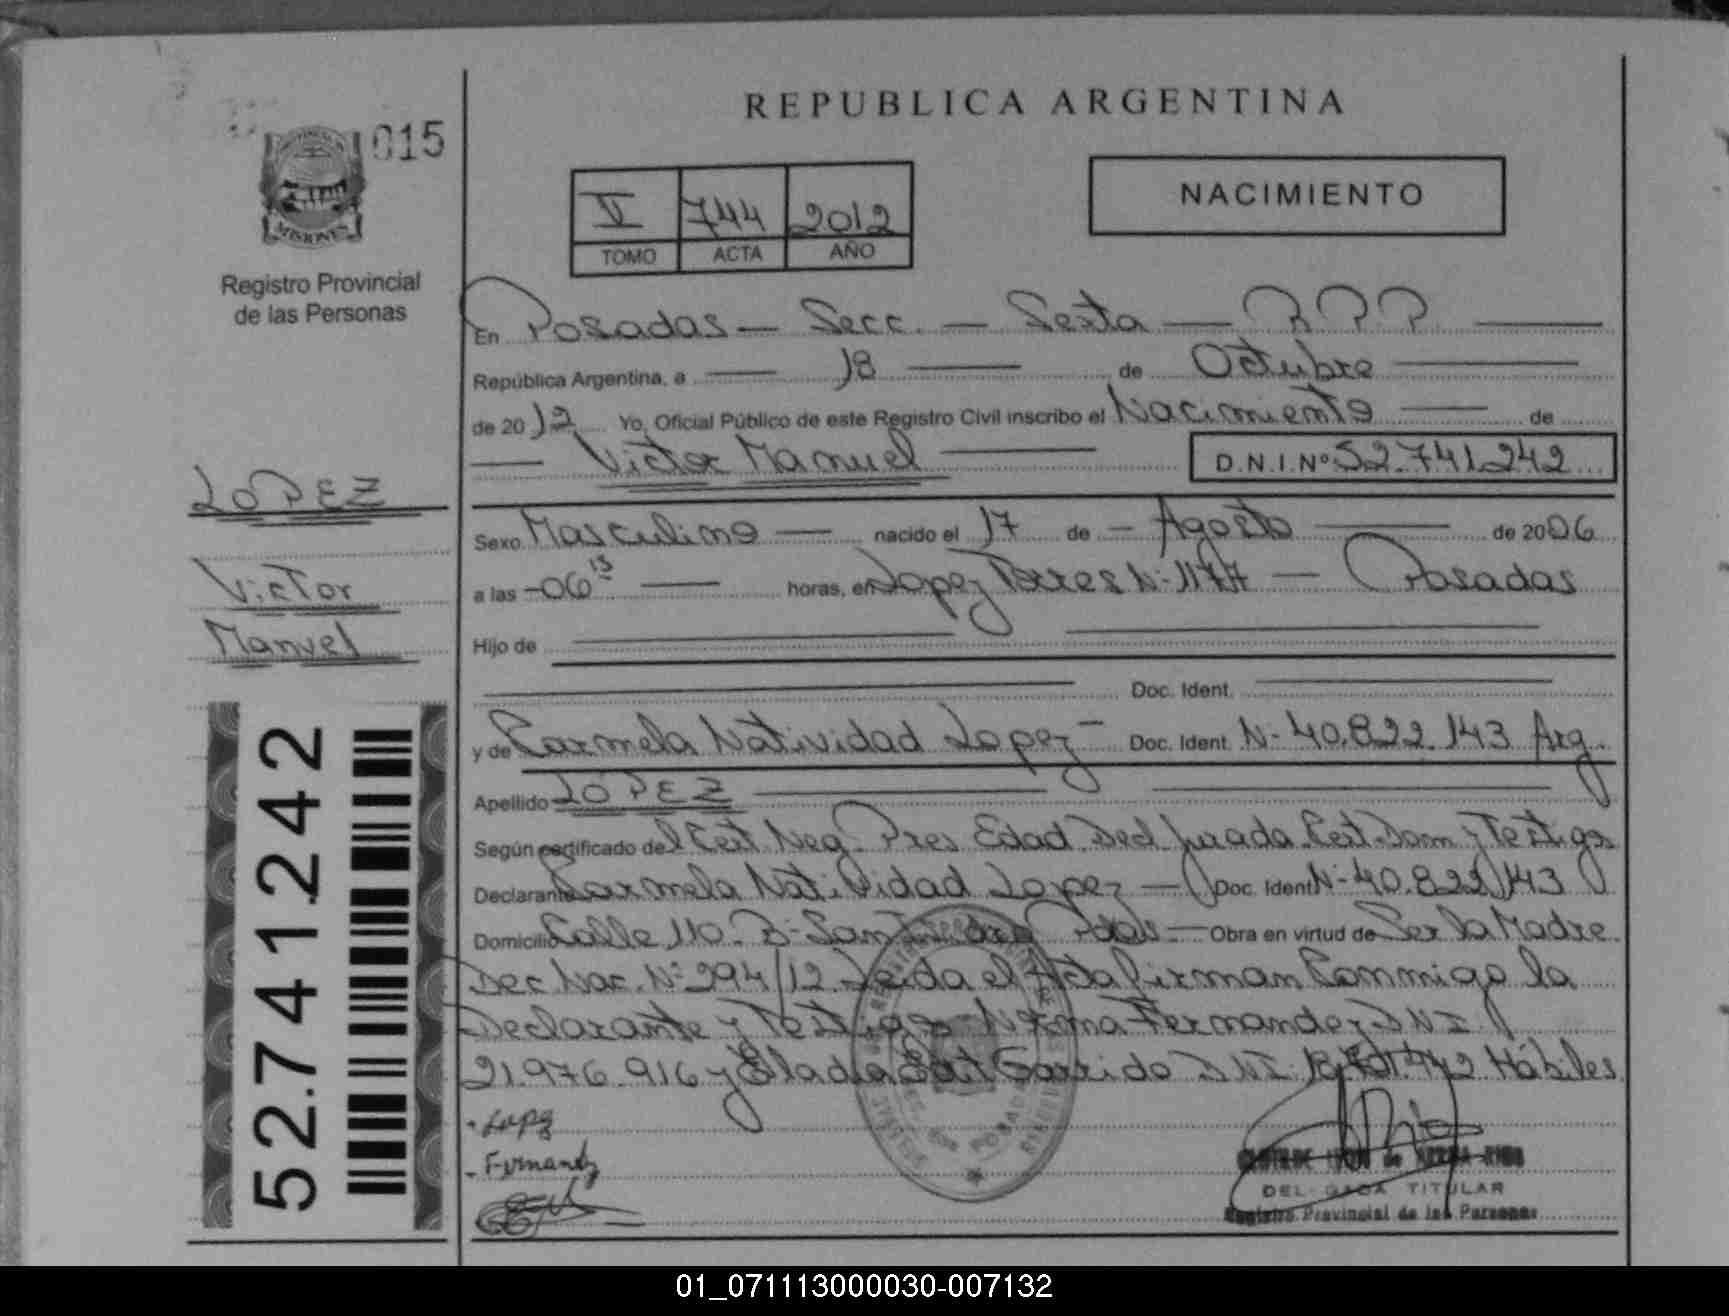 015
MISIONES
Registro Provincial
de las Personas
LOPEZ
Victor
Manuel
52.741.242
REPUBLICA ARGENTINA
V 744 2012
TOMO ACTA AÑO
NACIMIENTO
En Posadas — Secc. — Sexta — R P P —
República Argentina, a — 18 — de Octubre —
de 2012 Yo, Oficial Público de este Registro Civil inscribo el Nacimiento — de
— Victor Manuel — D.N.I.Nº 52.741.242
Sexo Masculino — nacido el 17 de — Agosto — de 2006
a las -06 15 — horas, en Lopez Torres N- 1177 — Posadas
Hijo de
Doc. Ident.
y de Carmela Natividad Lopez — Doc. Ident. N- 40.822.143 Arg.
Apellido LOPEZ
Según certificado del Cert. Neg. Pres. Edad. Decl. Jurada. Cert. Dom y Testigos
Declarante Carmela Natividad Lopez — Doc. Ident N- 40.822.143
Domicilio Calle 110. B- San Pdas — Obra en virtud de Ser la Madre
Dec. Nac. Nº 294/12 Leida el Acta firman Conmigo la
Declarante y Testigos Norma Fernandez D N I
21.976.916 y Eladia Garrido D N I. Hábiles
Lopez
Fernandez
DELEGADA TITULAR
Registro Provincial de las Personas
01_071113000030-007132